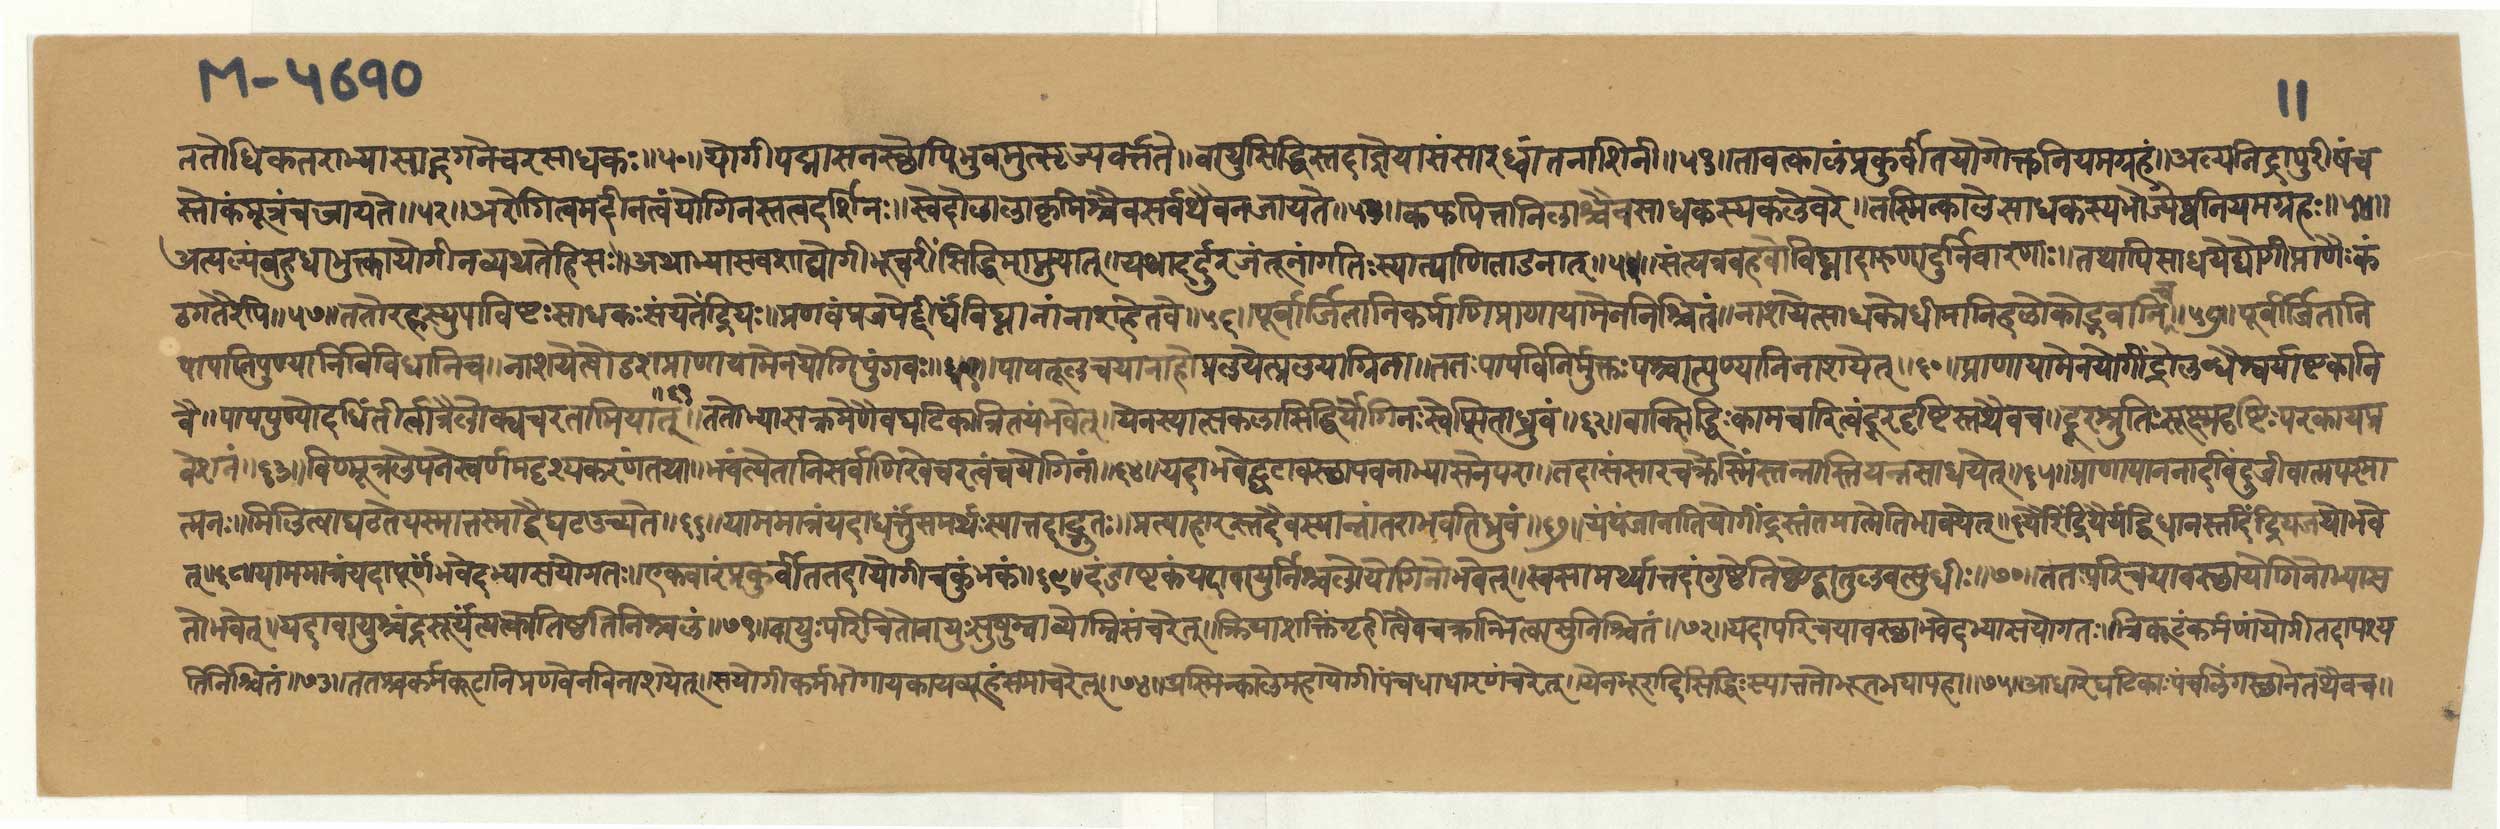 M-५6९0
11
ततोधिकतराभ्यासाद्गगनेचरसाधकः॥५०॥योगीपद्मासनस्छोपिभुवमुत्सृज्यवर्त्तते॥वायुसिद्धिस्तदाज्ञेयासंसारध्वांतनाशिनी॥५१॥तावत्कालंप्रकुर्वीतयोगोक्तनियमग्रहं॥अल्पनिद्रापुरीषंच
स्तोकंमूत्रंचजायते॥५२॥अरोगित्वमदीनत्वंयोगिनस्तत्वदर्शिनः॥स्वेदोलालाकृमिश्चैवसर्वथैवनजायते॥५३॥कफपित्तानिलाश्चैवसाधकस्यकलेवरे॥तस्मिन्कालेसाधकस्यभोज्येष्वनियमग्रहः॥५४॥
अत्यल्पंबहुधाभुक्तायोगीनव्यथतेहिसः॥अथाभ्यासवशाद्योगीभूचरींसिद्धिमाप्नुयात्॥यथादर्दुरजंतूनांगतिःस्यात्पाणिताडनात्॥५५॥संत्यत्रबहवोविघ्नादारुणादुर्निवारणाः॥तथापिसाधयेद्योगीप्राणैःकं
ठगतैरपि॥५७॥ततोरहस्युपाविष्टःसाधकःसंयतेंद्रियः॥प्रणवंप्रजपेद्दीर्घंविघ्नानांनाशहेतवे॥५८॥पूर्वार्जितानिकर्माणिप्राणायामेननिश्चितं॥नाशयेत्साधकोधीमानिहलोकोद्भवानिच॥५९॥पूर्वार्जितानि
पापानिपुण्यानिविविधानिच॥नाशयेत्षोडशप्राणायामेनयोगिपुंगवः॥पापतूलचयानाहोप्रलयेत्प्रलयाग्निना॥ततःपापविनिर्मुक्तःपश्चात्पुण्यानिनाशयेत्॥६०॥प्राणायामेनयोगींद्रोलब्ध्वैश्वर्याष्टकानि
वै॥पापपुण्योदधिंतीर्त्वात्रैलोक्यचरतामियात्॥६१॥ततोभ्यासक्रमेणैवघटिकात्रितयंभवेत्॥येनस्यात्सकलासिद्धिर्योगिनःस्वेप्सिताध्रुवं॥६२॥वाक्सिद्धिःकामचारित्वंदूरदृष्टिस्तथैवच॥दूरश्रुतिःसूक्ष्मदृष्टिःपरकायप्र
वेशनं॥६३॥विण्मूत्रलेपनेस्वर्णमदृश्यकरणंतथा॥भवंत्येतानिसर्वाणिखेचरत्वंचयोगिनां॥६४॥यदाभवेद्घटावस्छापवनाभ्यासेनपरा॥तदासंसारचक्रेस्मिंस्तन्नास्तियन्नसाधयेत्॥६५॥प्राणापाननादविंदुजीवात्मपरमा
त्मनः॥मिलित्वाघटतेयस्मात्तस्माद्वैघटउच्यते॥६६॥याममात्रंयदाधर्त्तुंसमर्थःस्यात्तदाद्भुतः॥प्रत्याहारस्तदैवस्यान्नांतराभवतिध्रुवं॥६७॥यंयंजानातियोगींद्रस्तंतमात्मेतिभावयेत्॥यैरिंद्रियैर्यद्विधानस्तदिंद्रियजयोभवे
त्॥६८॥याममात्रंयदापूर्णंभवेदभ्यासयोगतः॥एकवारंप्रकुर्वीततदायोगीचकुंभकं॥६९॥दंडाष्टकंयदावायुर्निश्चलोयोगिनोभवेत्॥स्वसामर्थ्यात्तदांगुष्ठेतिष्ठेद्वातुलवत्सुधीः॥७०॥ततःपरिचयावस्छायोगिनोभ्यास
तोभवेत्॥यदावायुश्चंद्रसूर्यंत्यत्कातिष्ठतिनिश्चलं॥७१॥वायुःपरिचितोवायुःसुषुम्नाव्योम्निसंचरेत्॥क्रियाशक्तिंगृहीत्वैवचक्रान्भित्वासुनिश्चितं॥७२॥यदापरिचयावस्छाभवेदभ्यासयोगतः॥त्रिकूटंकर्मणांयोगीतदापश्य
तिनिश्चितं॥७३॥ततश्चकर्मकूटानिप्रणवेनविनाशयेत्॥सयोगीकर्मभोगायकायव्यूहंसमाचरेत्॥७४॥अस्मिन्कालेमहायोगीपंचधाधारणंचरेत्॥येनभूरादिसिद्धिःस्यात्ततोभूतभयापहा॥७५॥आधारेघटिकाःपंचलिंगस्छानेतथैवच॥